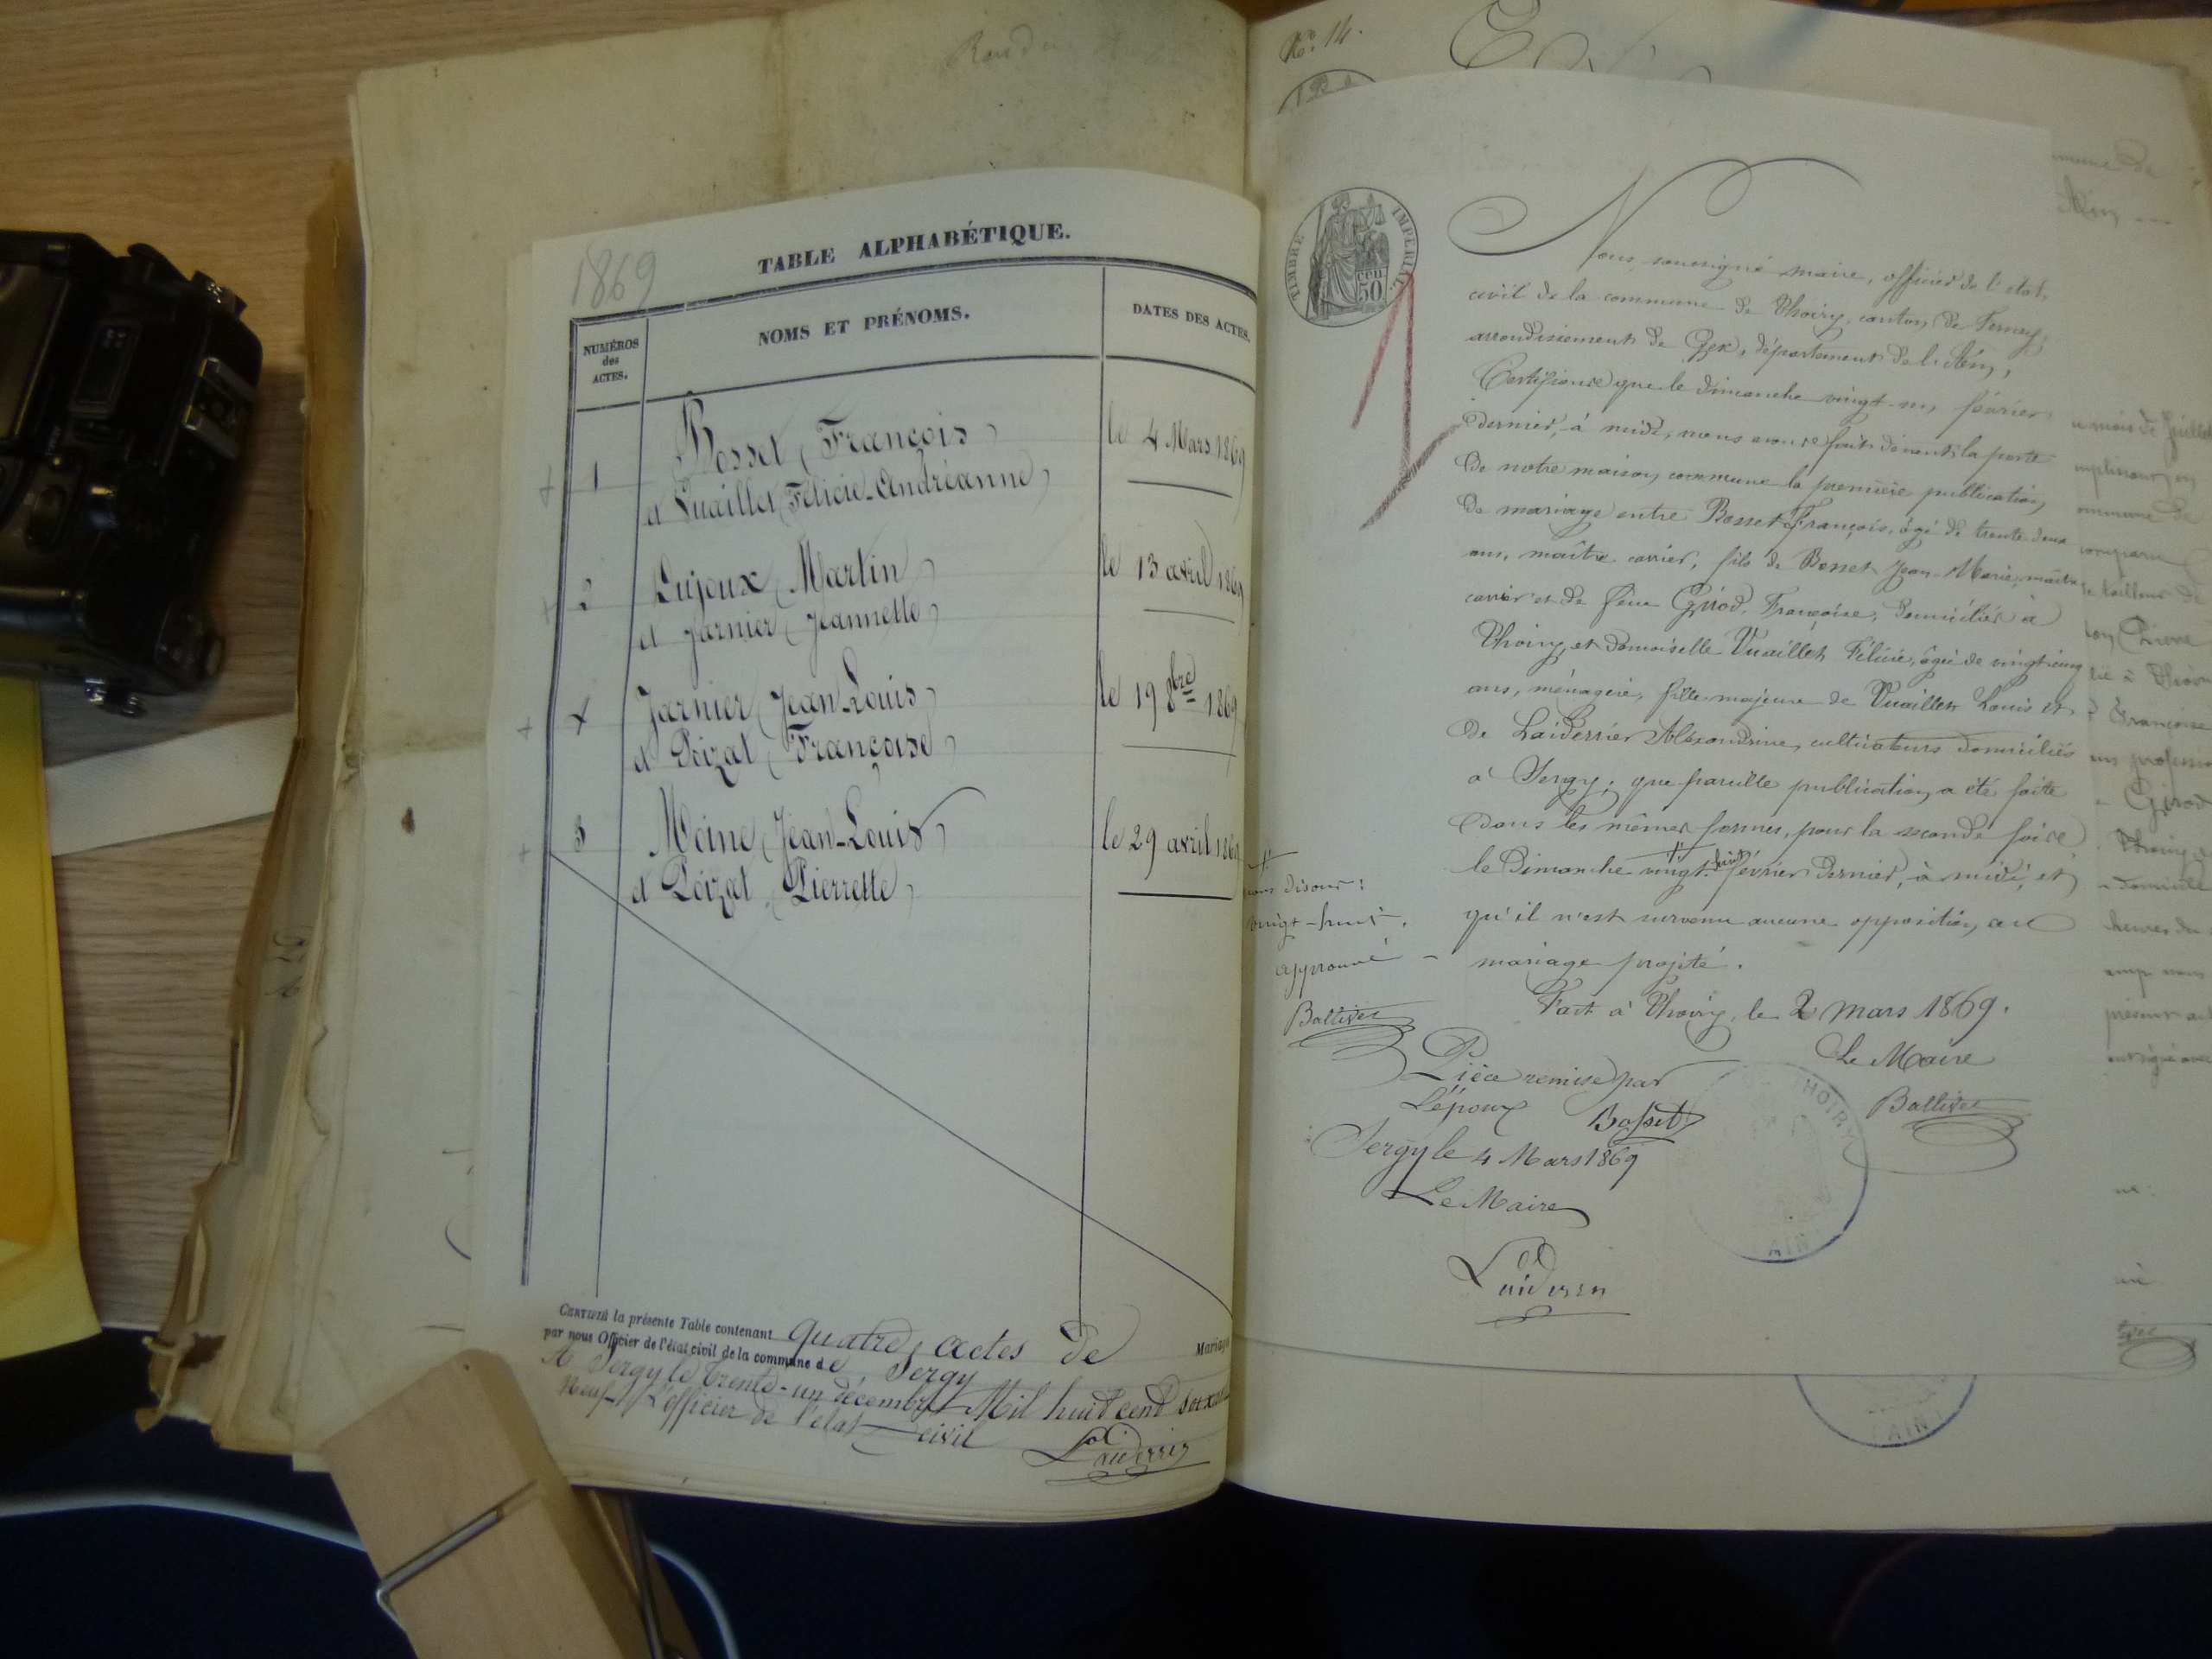 1869
TABLE ALPHABÉTIQUE.
NUMÉROS
des
ACTES.
NOMS ET PRÉNOMS.
DATES DES ACTES.
1 Bosset François le 4 Mars 1869
et Vuaillet Félicie-Andréanne
2 Lujoux Martin le 13 avril 1869
et Jarnier Jeannette
4 Jarnier Jean-Louis le 19 8bre 1869
et Poizat Françoise
3 Moine Jean-Louis le 29 avril 1869
et Poizat Pierrette
CERTIFIÉ la présente Table contenant quatre actes de Mariage
par nous Officier de l'état civil de la commune de Sergy
A Sergy le trente-un décembre Mil huit cent soixante
Neuf L'officier de l'état civil
Laiderrier
No. 14.
TIMBRE IMPERIAL.
50 CEN
Nous, soussigné maire, officier de l'état
civil de la commune de Thoiry, canton de Ferney,
arrondissement de Gex, département de l'Ain,
Certifions que le dimanche vingt-un février
dernier, à midi, nous avons fait devant la porte
de notre maison commune la première publication
de mariage entre Bosset François, âgé de trente deux
ans, maître carrier, fils de Bosset Jean-Marie, maître
carrier et de feue Girod Françoise, domiciliés à
Thoiry, et demoiselle Vuaillet Félicie, âgée de vingt cinq
ans, ménagère, fille majeure de Vuaillet Louis et
de Laiderrier Alexandrine, cultivateurs domiciliés
à Sergy; que pareille publication a été faite
dans les mêmes formes, pour la seconde fois
le Dimanche vingt-huit février dernier, à midi, et
qu'il n'est survenu aucune opposition au
mariage projeté.
nous disons:
vingt-huit.
approuvé
Baltives
Fait à Thoiry, le 2 mars 1869.
Le Maire
Baltives
Pièce remise par
L'époux Bosset
Sergy le 4 Mars 1869
Le Maire
Laiderrier
THOIRY
AIN